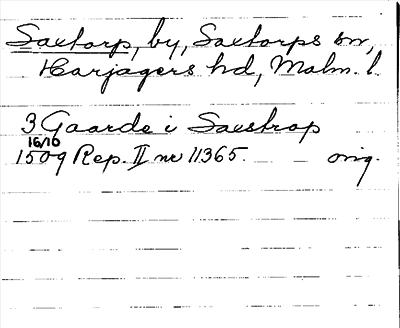 Saxtorp, by, Saxtorps sn,
Harjagers hd, Malm. l.
3 Gaarde i Saxstrop
16/10
1509 Rep. II nr 11365. orig.